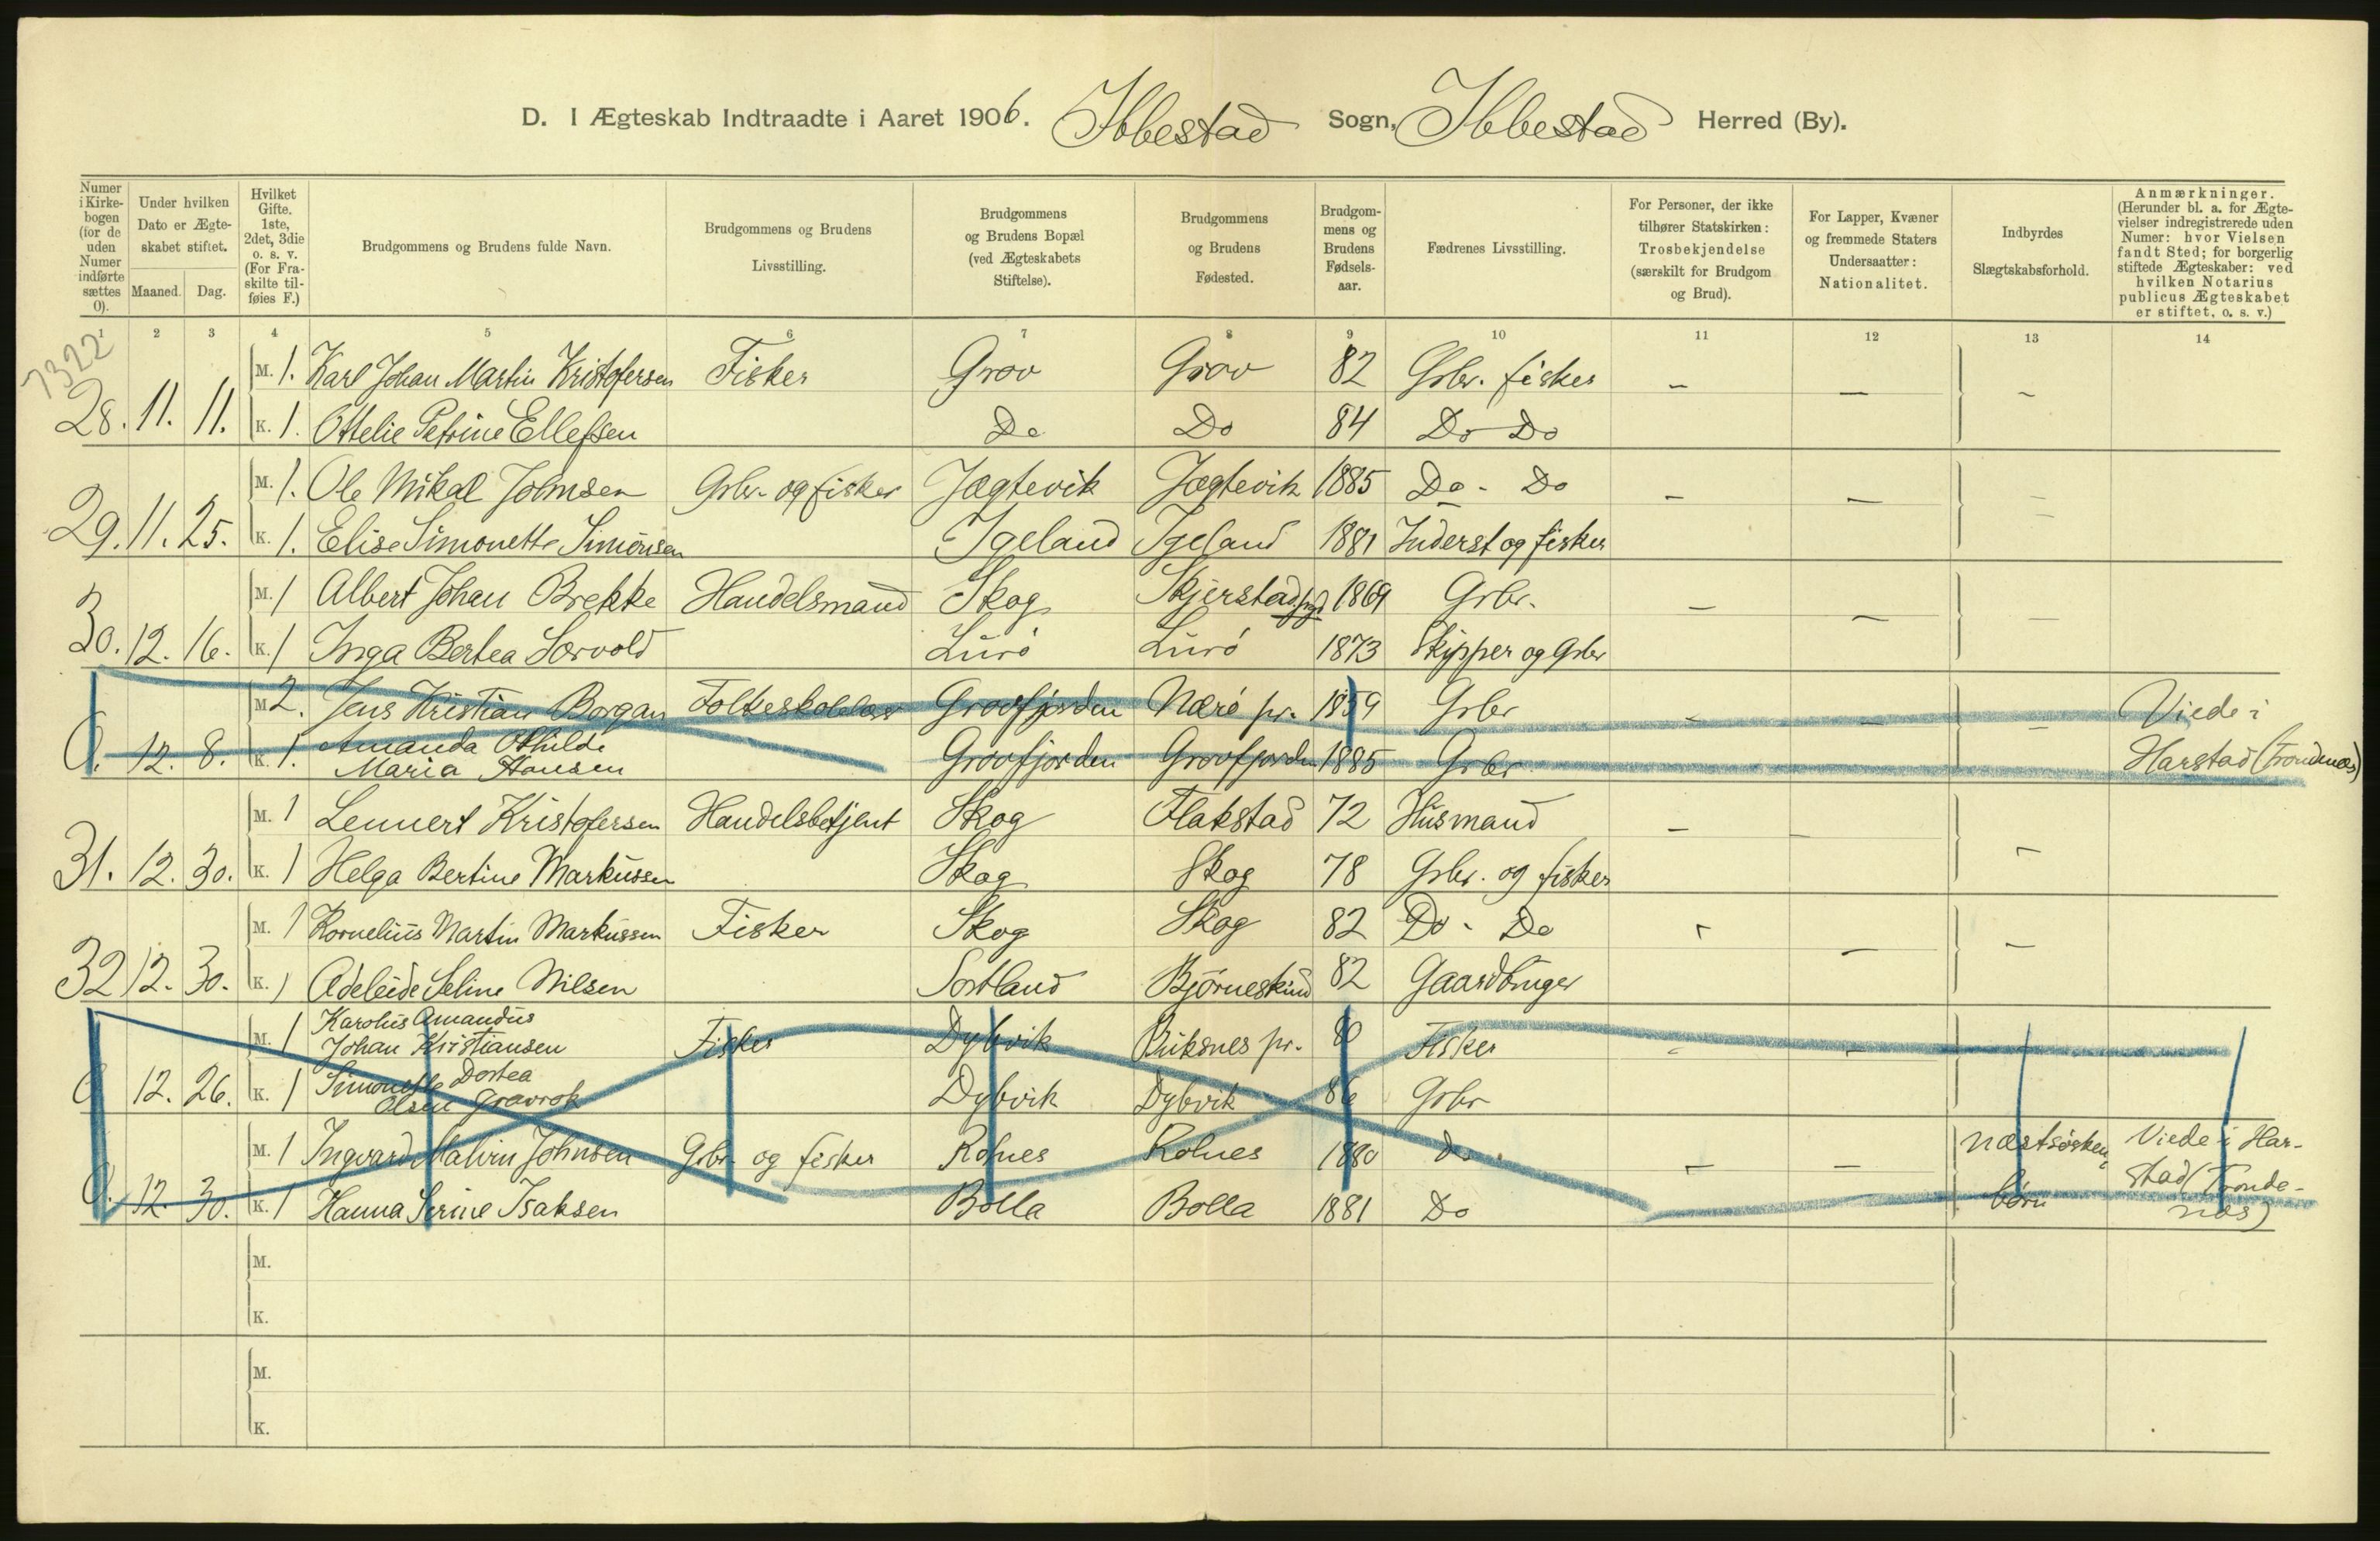 D. I Ægteskab Indtraadte i Aaret 1906. Ibbestad Sogn, Ibbestad Herred (By).
Numer i Kirkebogen (for de uden Numer indførte sættes 0).
Under hvilken Dato er Ægteskabet stiftet.
Maaned. Dag.
Hvilket Gifte. 1ste, 2det, 3die o. s. v. (For Fraskilte tilføies F.)
Brudgommens og Brudens fulde Navn.
Brudgommens og Brudens Livsstilling.
Brudgommens og Brudens Bopæl (ved Ægteskabets Stiftelse).
Brudgommens og Brudens Fødested.
Brudgommens og Brudens Fødselsaar.
Fædrenes Livsstilling.
For Personer, der ikke tilhører Statskirken: Trosbekjendelse (særskilt for Brudgom og Brud).
For Lapper, Kvæner og fremmede Staters Undersaatter: Nationalitet.
Indbyrdes Slægtskabsforhold.
Anmærkninger. (Herunder bl. a. for Ægtevielser indregistrerede uden Numer: hvor Vielsen fandt Sted; for borgerlig stiftede Ægteskaber: ved hvilken Notarius publicus Ægteskabet er stiftet, o. s. v.)
1 2 3 4 5 6 7 8 9 10 11 12 13 14
7322
M. 1. Karl Johan Martin Kristofersen Fisker Grov Grov 82 Grbr. fisker – – –
28. 11. 11. K. 1. Ottelie Petrine Ellefsen Do Do 84 Do Do
M. 1. Ole Mikal Johnsen Grbr. og fisker Jægtevik Jægtevik 1885 Do - Do – – –
29. 11. 25. K. 1. Elise Simonette Simonsen Igeland Igeland 1881 Inderst og fisker –
M. 1 Albert Johan Brekke Handelsmand Skog Skjerstad 1869 Grbr. – – –
30. 12. 16. K. 1 Inga Bertea Sørvold Lurö Lurö 1873 Skipper og Grbr
M 2. Jens Kristian Borgan Folkeskolelær Grovfjorden Nærö pr. 1859 Grbr – – – Viede i
0. 12. 8. K. 1. Amanda Othilde Maria Hansen Grovfjorden Grovfjorden 1885 Grbr Harstad (Trondenæs)
M. 1 Lennert Kristofersen Handelsbetjent Skog Flakstad 72 Husmand – – –
31. 12. 30. K. 1 Helga Bertine Markussen Skog Skog 78 Grbr. og fisker
M. 1 Kornelius Martin Markussen Fisker Skog Skog 82 Do - Do – – –
32 12. 30. K. 1 Adeleide Seline Nilsen Sortland Bjørneskind 82 Gaardbruger
M. 1 Karolus Amandus Johan Kristiansen Fisker Dybvik Buksnes pr. 80 Fisker – –
0 12. 26. K. 1 Simonette Dortea Olsen Gravrok Dybvik Dybvik 86 Grbr
M. 1 Ingvard Malvin Johnsen Grbr. og fisker Rolnes Rolnes 1880 Do. – – Næstsösken- Viede i Har-
0. 12. 30. K. 1 Hanna Serine Isaksen Bolla Bolla 1881 Do börn stad (Tronde-
næs)
M.
K.
M.
K.